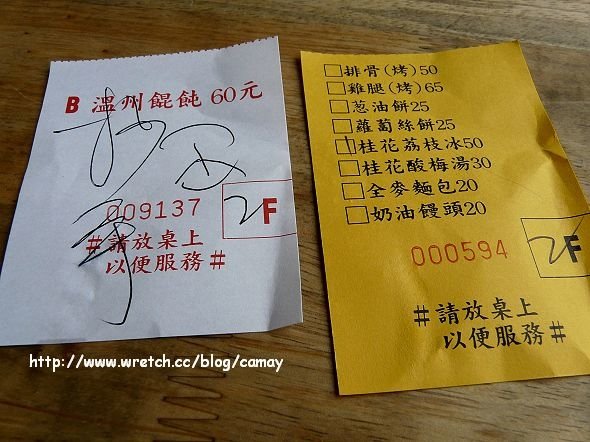 B 溫州餛飩 60元
009137
2F
#請放桌上
以便服務#
□排骨(烤)50
□雞腿(烤)65
□蔥油餅25
□蘿蔔絲餅25
□桂花荔枝冰50
□桂花酸梅湯30
□全麥麵包20
□奶油饅頭20
000594
2F
#請放桌上
以便服務#
http://www.wretch.cc/blog/camay